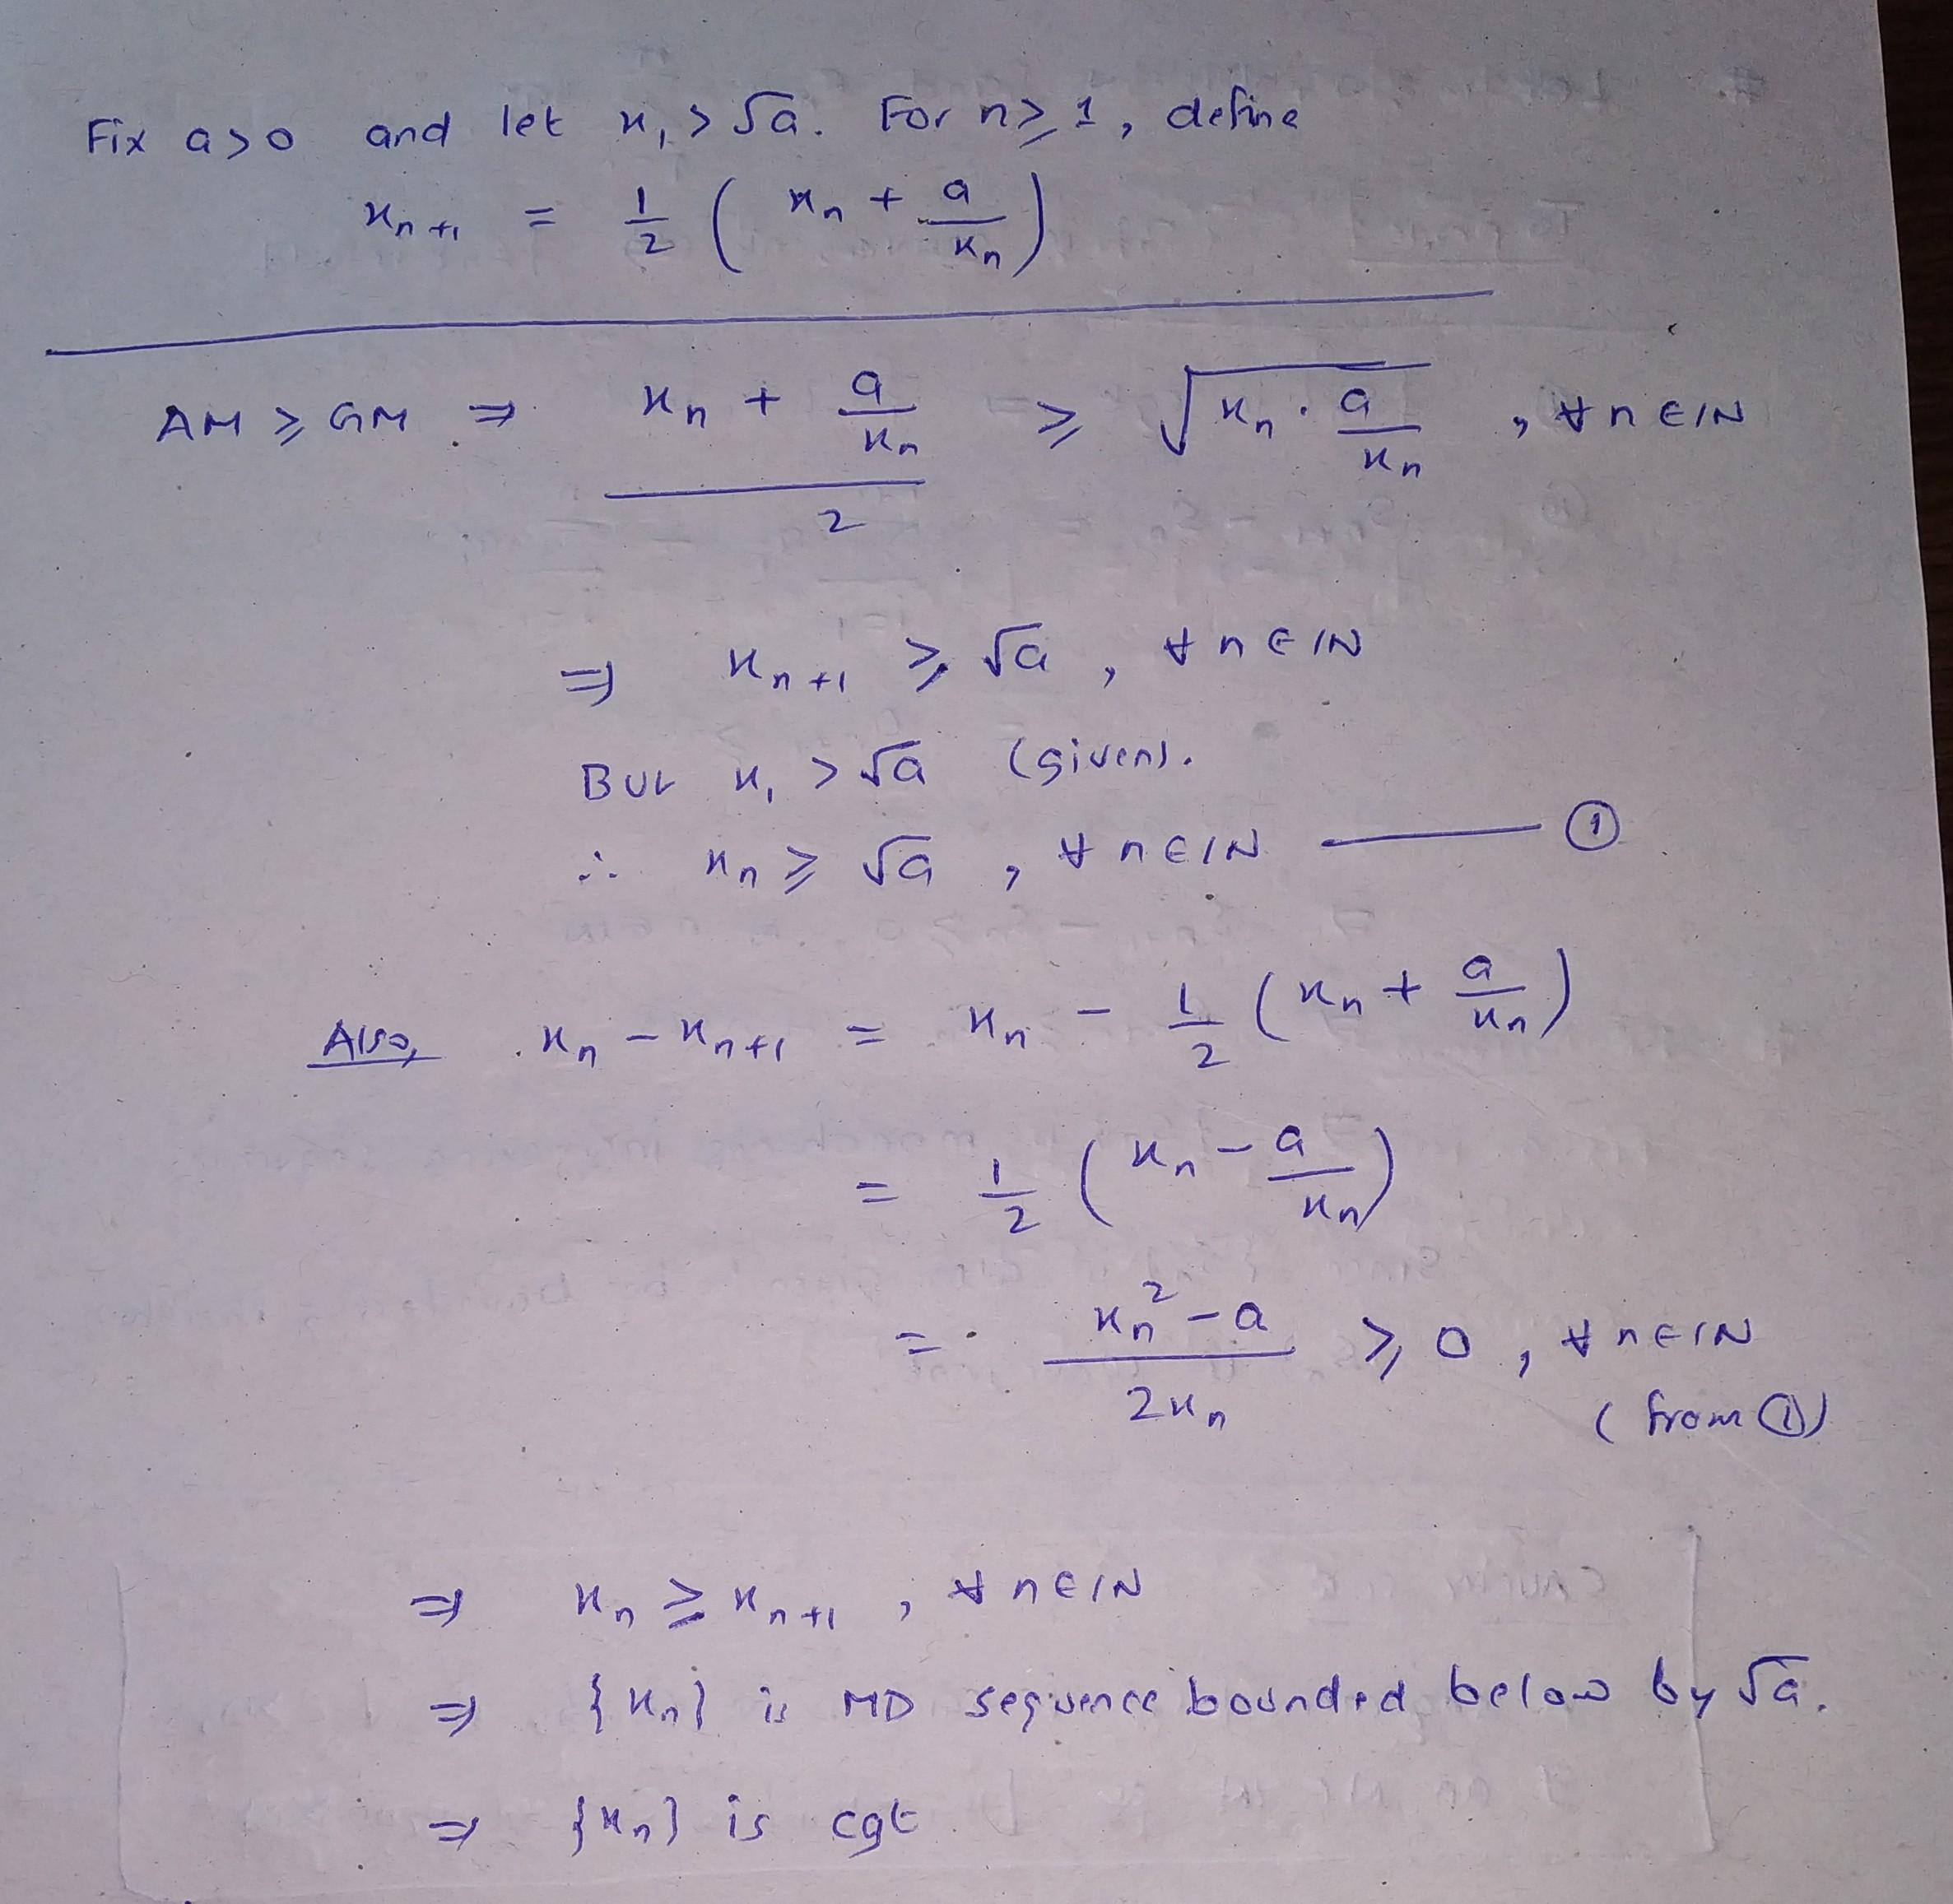 Fix a > 0 and let x₁ > √a. For n ≥ 1, define
xₙ₊₁ = 1/2 ( xₙ + a/xₙ )
AM ≥ GM ⇒ (xₙ + a/xₙ)/2 ≥ √(xₙ · a/xₙ) , ∀ n ∈ ℕ
⇒ xₙ₊₁ ≥ √a , ∀ n ∈ ℕ
But x₁ > √a (given).
∴ xₙ ≥ √a , ∀ n ∈ ℕ —— ①
Also, xₙ − xₙ₊₁ = xₙ − 1/2 ( xₙ + a/xₙ )
= 1/2 ( xₙ − a/xₙ )
= (xₙ² − a)/(2xₙ) ≥ 0 , ∀ n ∈ ℕ
(from ①)
⇒ xₙ ≥ xₙ₊₁ , ∀ n ∈ ℕ
⇒ {xₙ} is MD sequence bounded below by √a.
⇒ {xₙ} is cgt